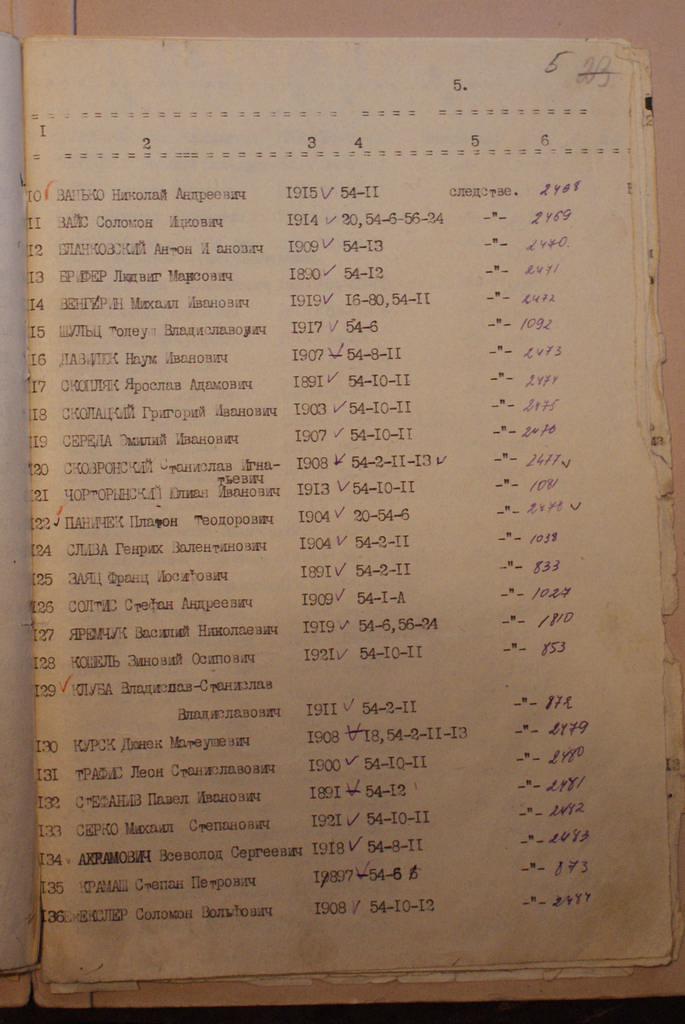 5 23
5.
I 2 3 4 5 6
I0 ВАНЬКО Николай Андреевич I9I5 54-II следстве. 2468
II ВАЙС Соломон Ицкович I9I4 20,54-6-56-24 -"- 2469
I2 БЛАНКОВСКИЙ Антон И анович I909 54-I3 -"- 2470
I3 БРИФЕР Людвиг Максович I890 54-I2 -"- 2471
I4 ВЕНГЕРИН Михаил Иванович I9I9 I6-80,54-II -"- 2472
I5 ШУЛЬЦ Тодеуш Владиславович I9I7 54-6 -"- 1092
I6 Наум Иванович I907 54-8-II -"- 2473
II7 СКОПЛЯК Ярослав Адамович I89I 54-I0-II -"- 2474
II8 СКОЛАЦКИЙ Григорий Иванович I903 54-I0-II -"- 2475
II9 СЕРЕДА Эмилий Иванович I907 54-I0-II -"- 2476
I20 СКОВРОНСКИЙ Станислав Игна-
тьевич I908 54-2-II-I3 -"- 2477
I2I ЧОРТОРЫНСКИЙ Юлиан Иванович I9I3 54-I0-II -"- 1081
I22 ПАНИЧЕК Платон Теодорович I904 20-54-6 -"- 2478
I24 СЛИВА Генрих Валентинович I904 54-2-II -"- 1038
I25 ЗАЯЦ Франц Иосифович I89I 54-2-II -"- 833
I26 СОЛТИС Стефан Андреевич I909 54-I-А -"- 1027
I27 ЯРЕМЧУК Василий Николаевич I9I9 54-6,56-24 -"- 1810
I28 КОШЕЛЬ Зиновий Осипович I92I 54-I0-II -"- 853
I29 КЛУБА Владислав-Станислав
Владиславович I9II 54-2-II -"- 872
I30 КУРСК Дюнек Матеушевич I908 I8,54-2-II-I3 -"- 2479
I3I ТРАФИС Леон Станиславович I900 54-I0-II -"- 2480
I32 СТЕФАНИВ Павел Иванович I89I 54-I2 -"- 2481
I33 СЕРКО Михаил Степанович I92I 54-I0-II -"- 2482
I34 АХРАМОВИЧ Всеволод Сергеевич I9I8 54-8-II -"- 2483
I35 КРАМАШ Степан Петрович I9897 54-6 -"- 873
I36 ВЕКСЛЕР Соломон Вольфович I908 54-I0-I2 -"- 2484